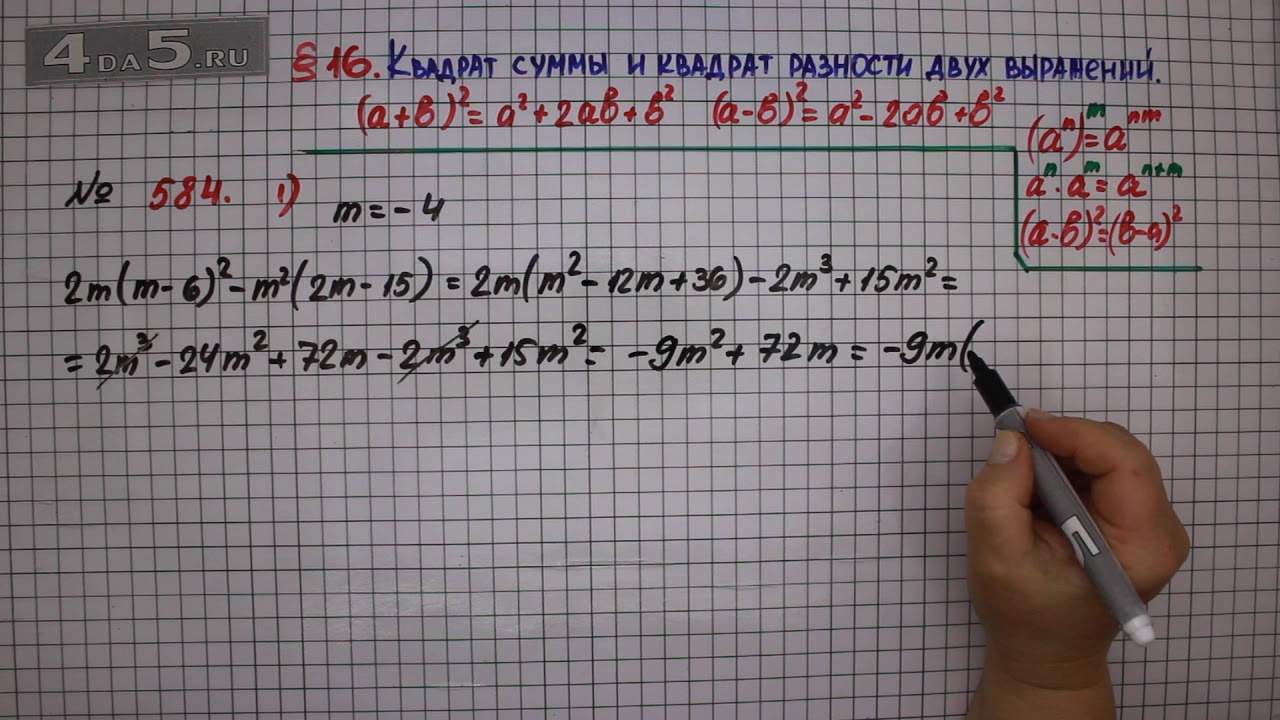 4DA5.RU
§ 16. Квадрат суммы и квадрат разности двух выражений.
(a+b)²= a²+2ab+b² (a-b)²= a²-2ab+b²
(aⁿ)ᵐ=aⁿᵐ
aⁿ·aᵐ=aⁿ⁺ᵐ
(a-b)²=(b-a)²
№ 584. 1) m=-4
2m(m-6)²-m²(2m-15)=2m(m²-12m+36)-2m³+15m²=
=2m³-24m²+72m-2m³+15m²= -9m²+72m=-9m(